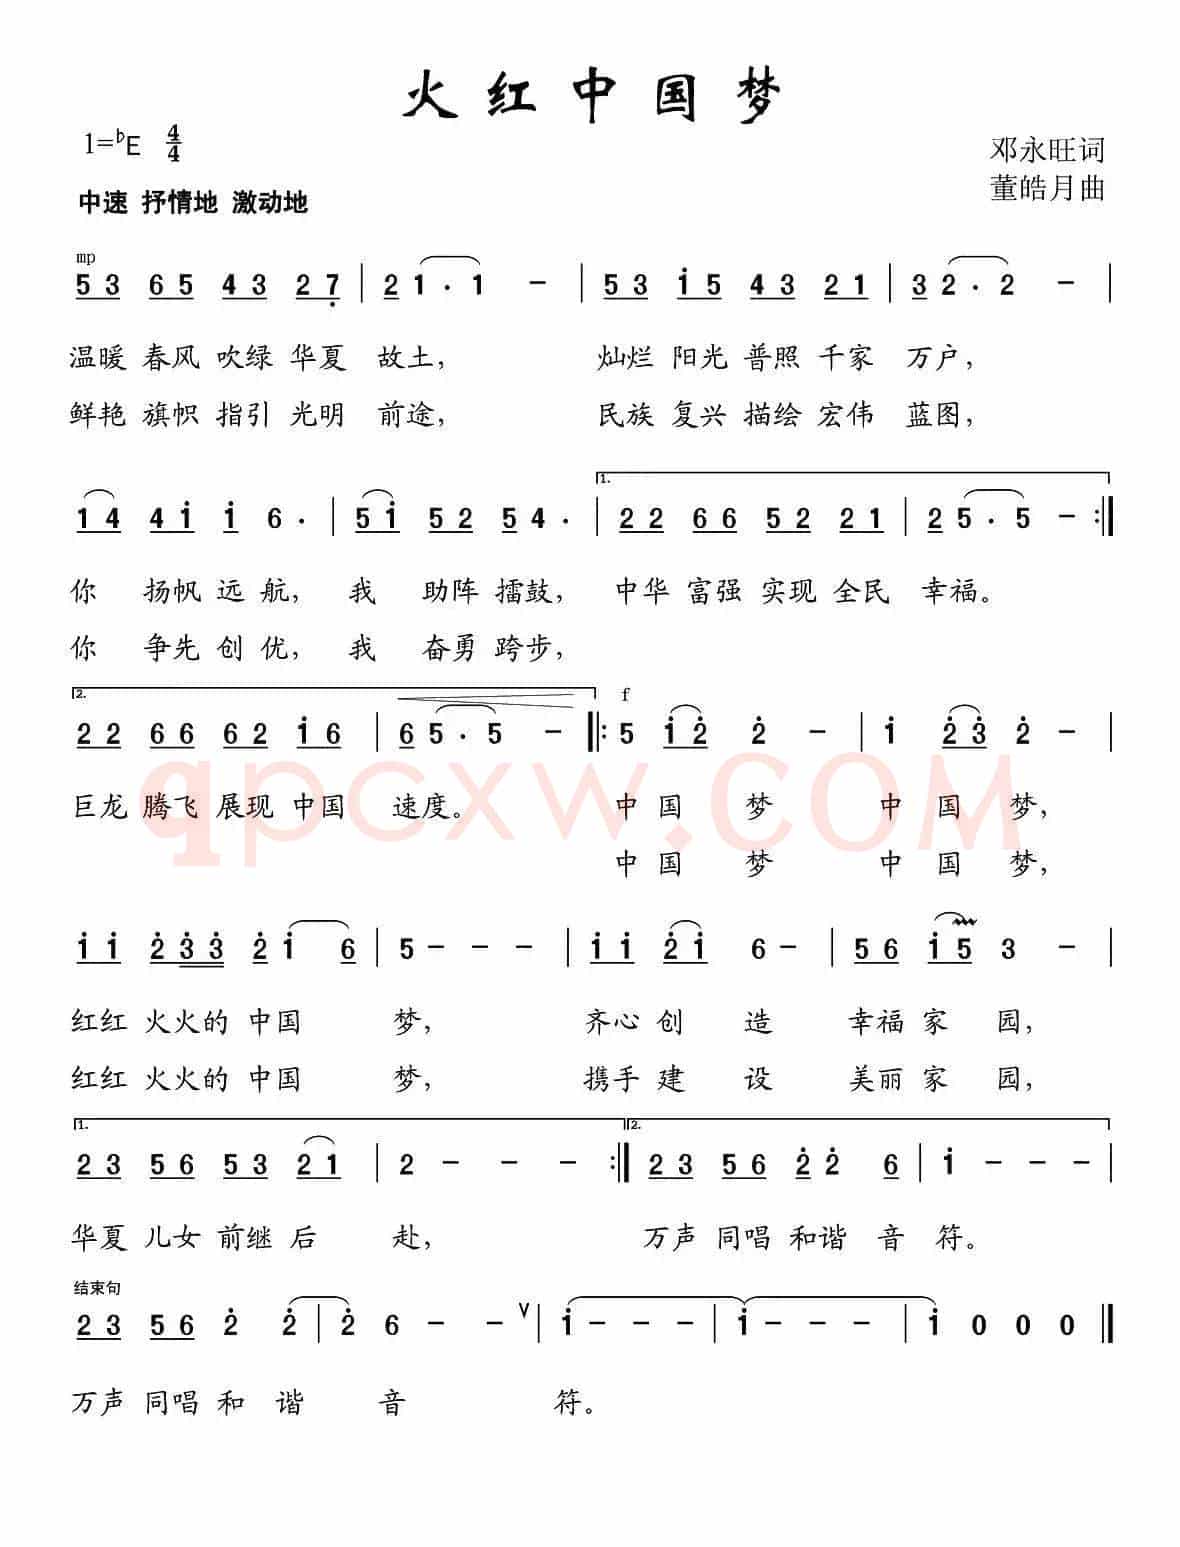 火红中国梦
1=♭E 4/4
邓永旺词
中速 抒情地 激动地
董皓月曲
mp
5 3 6 5 4 3 2 7̣ | 2 1 · 1 - | 5 3 1̇ 5 4 3 2 1 | 3 2 · 2 - |
温暖 春风 吹绿 华夏 故土, 灿烂 阳光 普照 千家 万户,
鲜艳 旗帜 指引 光明 前途, 民族 复兴 描绘 宏伟 蓝图,
1.
1 4 4 1̇ 1̇ 6 · | 5 1̇ 5 2 5 4 · | 2 2 6 6 5 2 2 1 | 2 5 · 5 - :|
你 扬帆 远 航, 我 助阵 擂鼓, 中华 富强 实现 全民 幸福。
你 争先 创 优, 我 奋勇 跨步,
2. f
2 2 6 6 6 2 1̇ 6 | 6 5 · 5 - |: 5 1̇ 2̇ 2̇ - | 1̇ 2̇ 3̇ 2̇ - |
qpcxw.COM
巨龙 腾飞 展现 中国 速度。 中 国 梦 中 国 梦,
中 国 梦 中 国 梦,
1̇ 1̇ 2̇ 3̇ 3̇ 2̇ 1̇ 6 | 5 - - - | 1̇ 1̇ 2̇ 1̇ 6 - | 5 6 1̇ 5 3 - |
红红 火火的 中国 梦, 齐心 创 造 幸福 家 园,
红红 火火的 中国 梦, 携手 建 设 美丽 家 园,
1. 2.
2 3 5 6 5 3 2 1 | 2 - - - :| 2 3 5 6 2̇ 2̇ 6 | 1̇ - - - |
华夏 儿女 前继 后 赴, 万声 同唱 和谐 音 符。
结束句
2 3 5 6 2̇ 2̇ | 2̇ 6 - - ∨ | 1̇ - - - | 1̇ - - - | 1̇ 0 0 0 ‖
万声 同唱 和 谐 音 符。